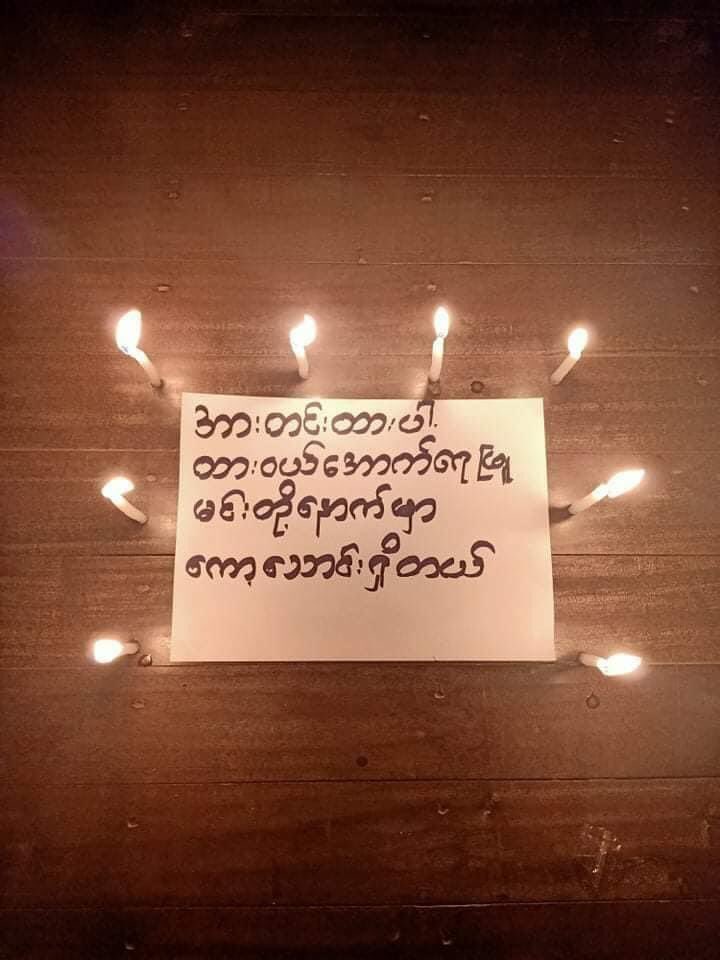 အားတင်းထားပါ
ထားဝယ်အောက်ရေဖြူ
မင်းတို့နောက်မှာ
ကော့သောင်းရှိတယ်